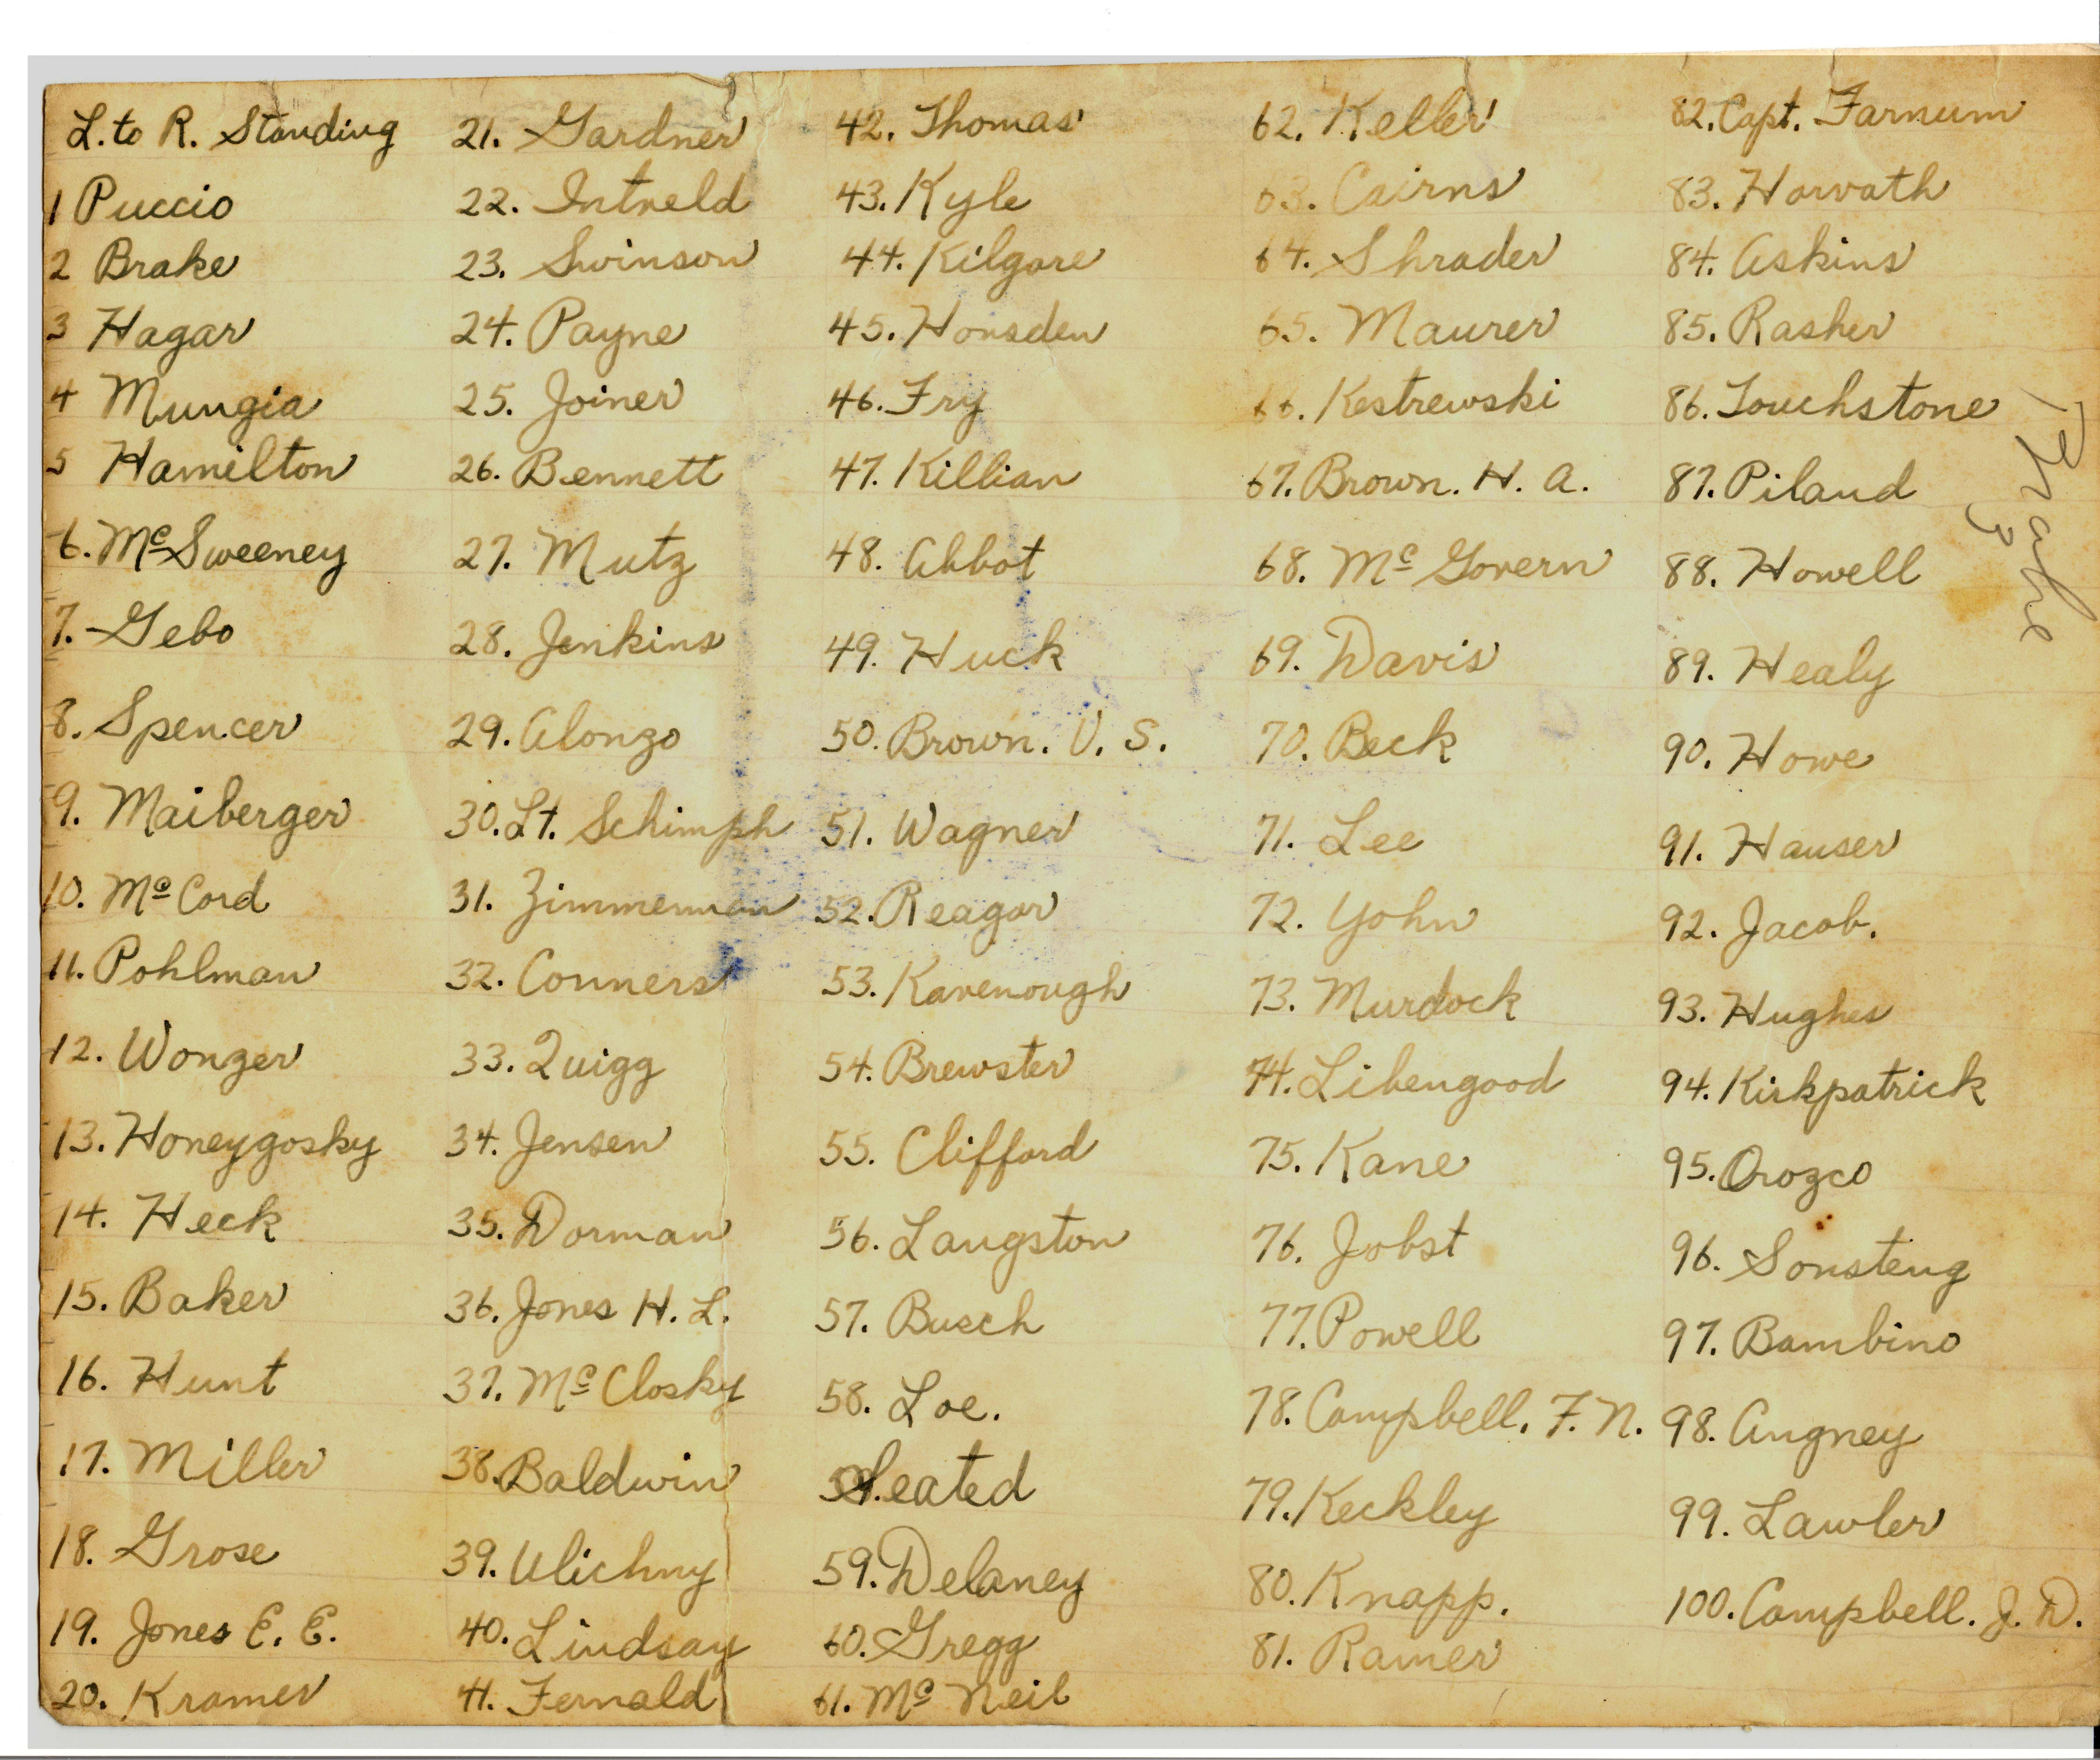 L. to R. Standing
1 Puccio
2 Brake
3 Hagar
4 Mungia
5 Hamilton
6. McSweeney
7. Gebo
8. Spencer
9. Maiberger
10. McCord
11. Pohlman
12. Wonzer
13. Honeygosky
14. Heck
15. Baker
16. Hunt
17. Miller
18. Grose
19. Jones E. E.
20. Kramer
21. Gardner
22. Intveld
23. Swinson
24. Payne
25. Joiner
26. Bennett
27. Mutz
28. Jenkins
29. Alonzo
30. Lt. Schimph
31. Zimmerman
32. Conners
33. Quigg
34. Jensen
35. Dorman
36. Jones H. L.
37. McClosky
38. Baldwin
39. Ulichny
40. Lindsay
41. Fernald
42. Thomas
43. Kyle
44. Kilgore
45. Honsden
46. Fry
47. Killian
48. Abbot
49. Huck
50. Brown. V. S.
51. Wagner
52. Reagar
53. Kavenough
54. Brewster
55. Clifford
56. Langston
57. Busch
58. Loe.
Seated
59. Delaney
60. Gregg
61. McNeil
62. Keller
63. Cairns
64. Shrader
65. Maurer
66. Kestrewski
67. Brown. H. A.
68. McGovern
69. Davis
70. Beck
71. Lee
72. Yohn
73. Murdock
74. Libengood
75. Kane
76. Jobst
77. Powell
78. Campbell. F. N.
79. Keckley
80. Knapp.
81. Ramer
82. Capt. Farnum
83. Horvath
84. Askins
85. Rasher
86. Touchstone
87. Piland
88. Howell
89. Healy
90. Howe
91. Hauser
92. Jacob.
93. Hughes
94. Kirkpatrick
95. Orozco
96. Sonsteng
97. Bambino
98. Angney
99. Lawler
100. Campbell. J. D.
Brake